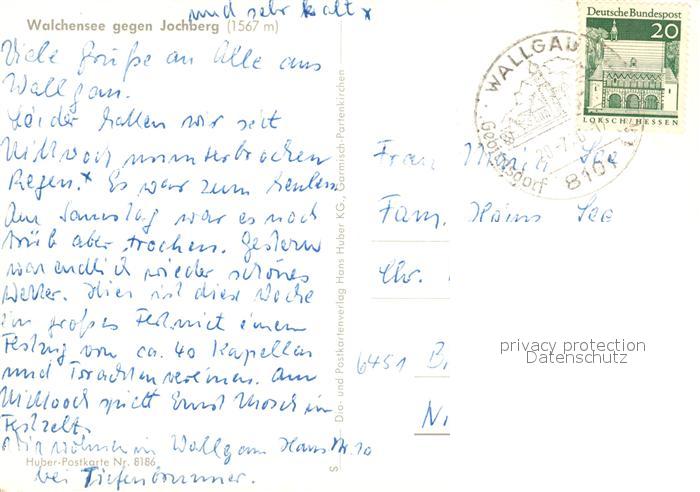 und sehr kalt x
Walchensee gegen Jochberg (1567 m)
Viele Grüße an Alle aus
Wallgau.
Leider hatten wir seit
Mittwoch ununterbrochen
Regen.x Es war zum heulen.
Am Samstag war es noch
trüb aber trocken. Gestern
war endlich wieder schönes
Wetter. Hier ist diese Woche
ein großes Fest mit einem
Festzug von ca. 40 Kapellen
und Trachtenvereinen. Am
Mittwoch spielt Ernst Mosch im
Festzelt.
Wir wohnen in Wallgau Haus Nr. 10
Huber-Postkarte Nr. 8186
bei Tiefenbrunner.
Dia- und Postkartenverlag Hans Huber KG., Garmisch-Partenkirchen
Deutsche Bundespost
20
LORSCH/HESSEN
WALLGAU
Gebirgsdorf
8101
Frau See
Fam. Hans See
Chr.
6451 B
N
privacy protection
Datenschutz